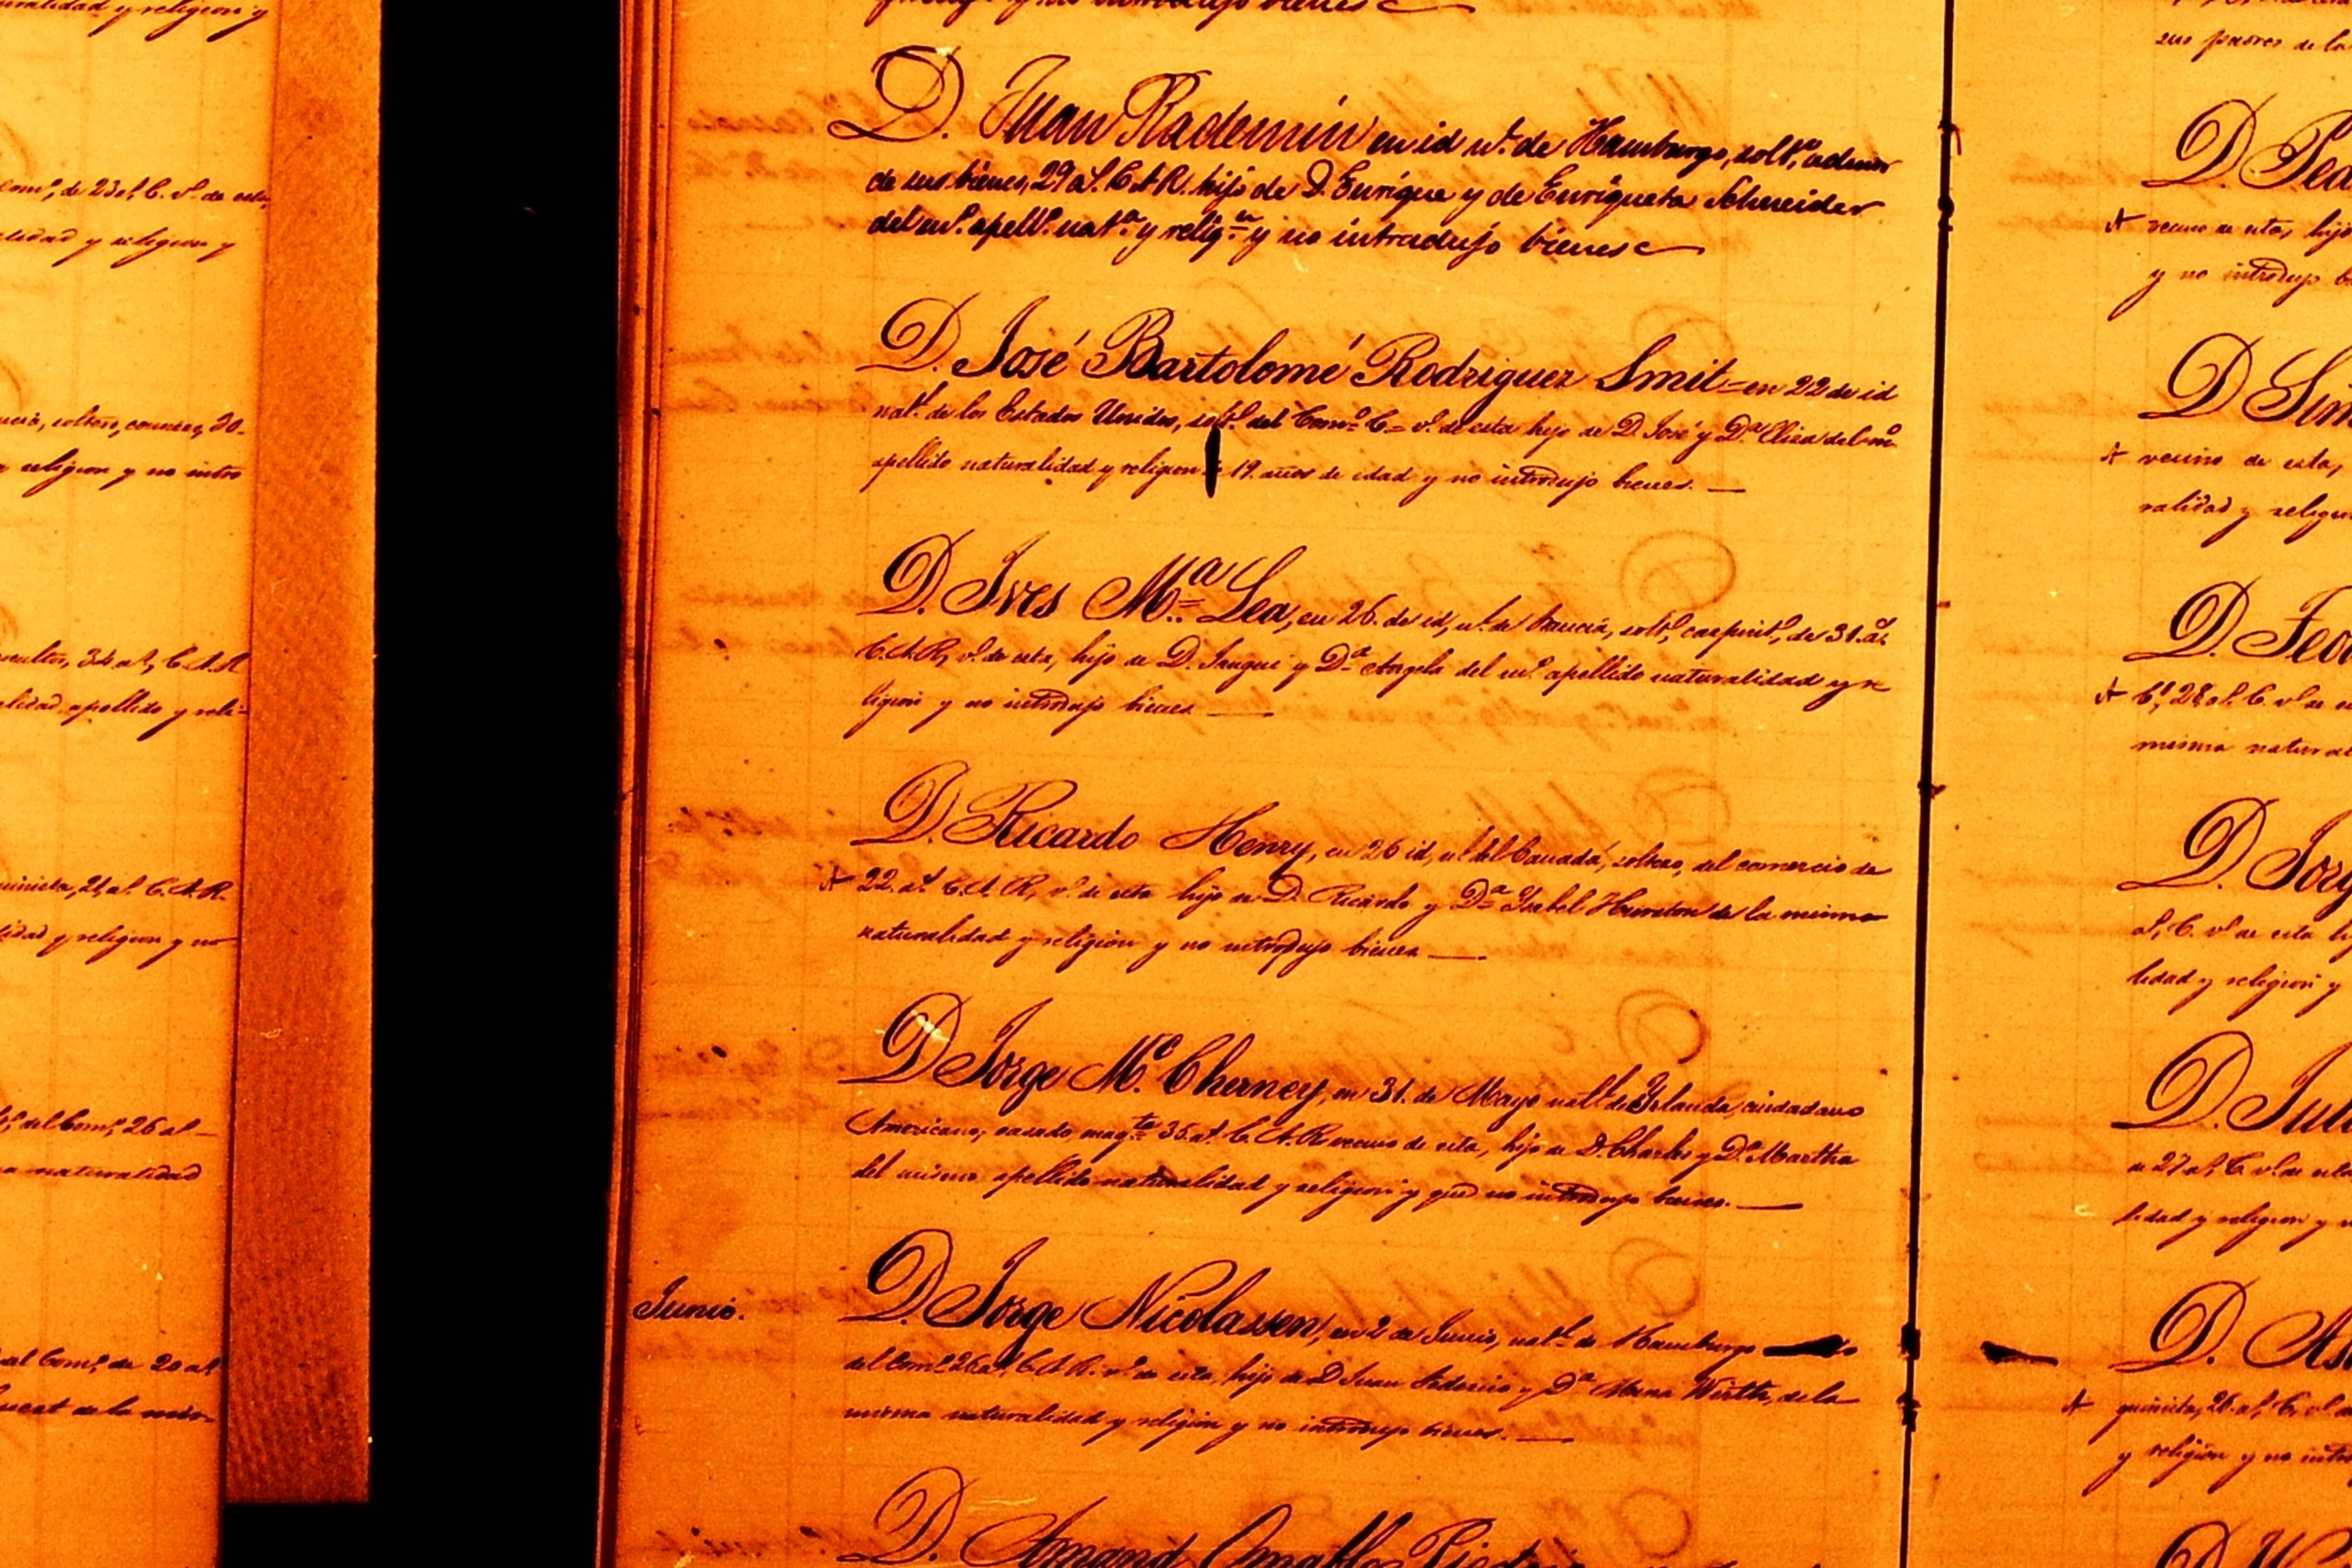 ralidad y religion y
com.º, de 23 a.s, C. v.º de esta,
lidad y religion y
ucia, soltero, comerc.,
religion y no intro
34 a.s, C. A. R.
lidad, apellido y reli-
21 a.s C. A. R.
idad y religion y no
del Com.º, 26 a.s
a naturalidad
del Com.º, de 20 a.s
de la mis-
y no introdujo bienes
D. Juan Rademin en id n.l de Hamburgo, solt.º,
de sus bienes, 29 a.s C. A. R. hijo de D. Enrique y de Enriqueta Schneider
del m.º apell.º nat.ª y relig.n y no intradujo bienes
D. José Bartolomé Rodriguez Smit = en 22 de id
nat.l de los Estados Unidos, solt.º del Com.º C = v.º de esta hijo de D. José y D.ª Elisa del m.º
apellido naturalidad y religion 19. años de edad y no introdujo bienes. —
D. Ives M.ª Lea, en 26. de id, n.l de Francia, solt.º, carpint.º, de 31. a.s
C. A. R., v.º de esta, hijo de D. y D.ª Angela del m.º apellido naturalidad y re
ligion y no introdujo bienes —
D. Ricardo Henry, en 26 id, n.l del Canadá, soltero, del comercio de
A 22. a.s C. A. R., v.º de esta hijo de D. Ricardo y D.ª Isabel de la misma
naturalidad y religion y no introdujo bienes —
D Jorge M.c Cherney, en 31. de Mayo nat.l de Irlanda, ciudadano
Americano, casado, maq.ta 35. a.s C. A. R. vecino de esta, hijo de D. Charles y D.ª Martha
del mismo apellido naturalidad y religion y que no introdujo bienes. —
Junio.
D. Jorge Nicolassen, en 2 de Junio, nat.l de Hamburgo
del Com.º 26 a.s, C. A. R. v.º de esta, hijo de D Juan Federico y D.ª Wirtth, de la
misma naturalidad y religion y no introdujo bienes. —
D. Amand
sus padres de la
D. Ped
A vecino de esta, hijo
y no introdujo b
D Sim
A vecino de esta,
ralidad y religi
D. Fed
A C.º, 28 a.s C. v.º de e
misma natural
D. Jorg
a.s, C. v.º de esta h
lidad y religion y
D. Jul
de 27 a.s, C. v.º de esta
lidad y religion y
D. As
A quinista, 26. a.s, C. v.º d
y religion y no intro